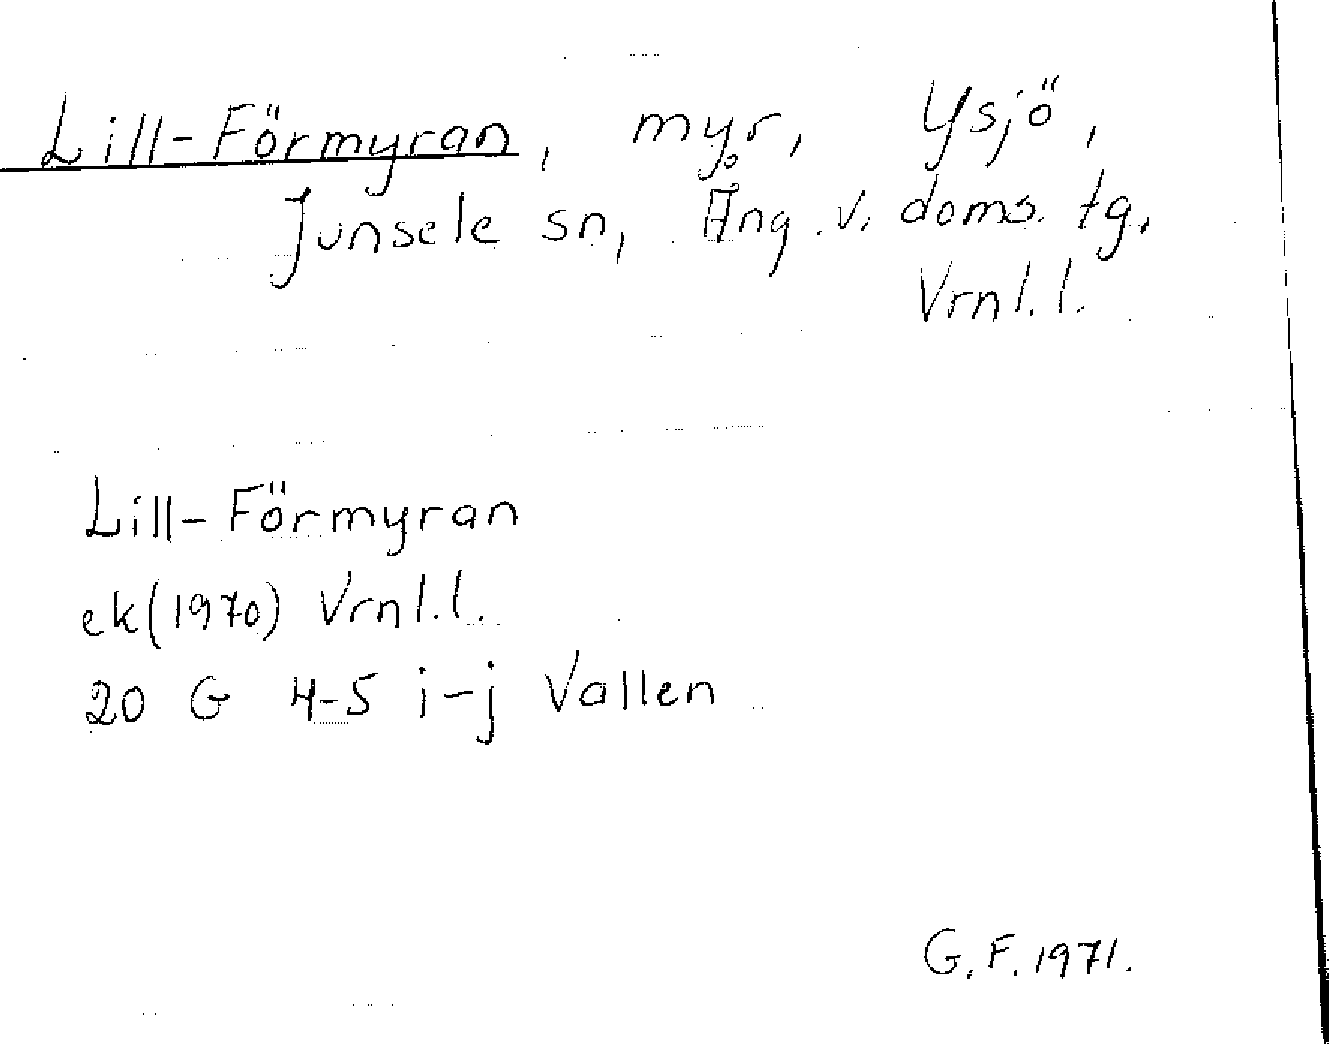 Lill-Förmyran, myr, Ysjö,
Junsele sn, Ång. v. doms. tg.
Vrnl.l.
Lill-Förmyran
ek(1970) Vrnl.l.
20 G 4-5 i-j Vallen
G.F. 1971.